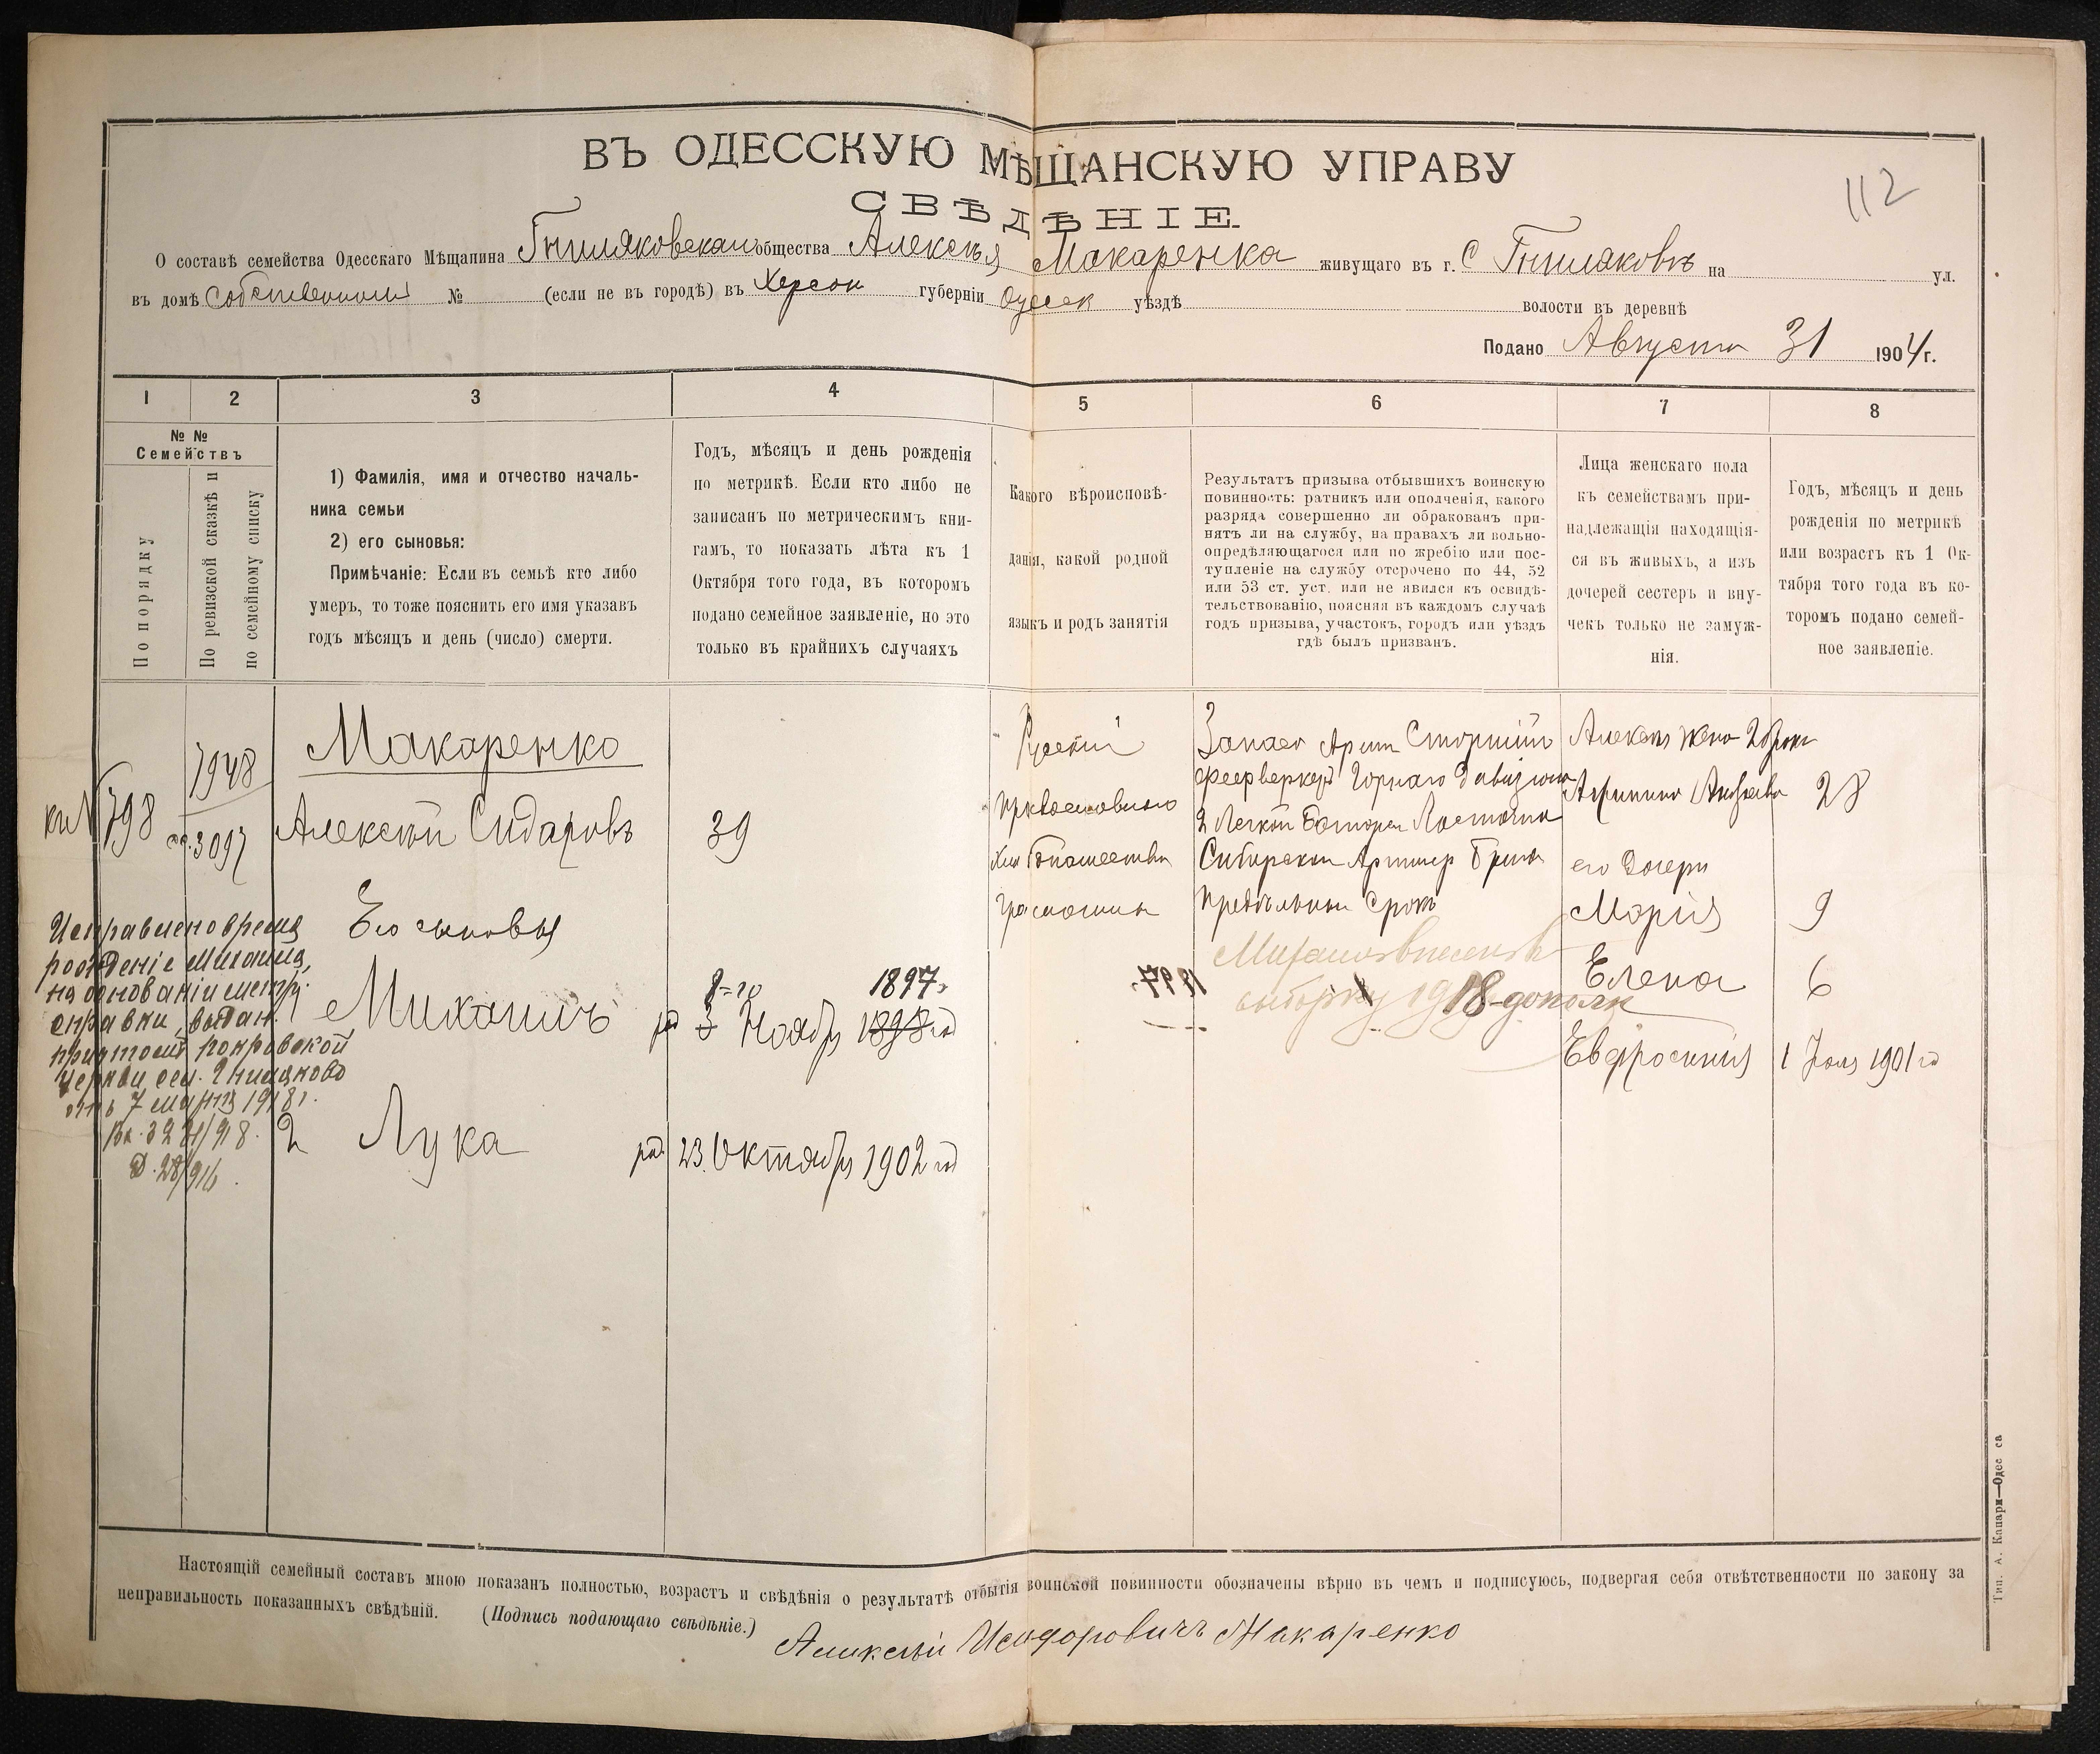 ВЪ ОДЕССКУЮ МѢЩАНСКУЮ УПРАВУ
112
СВѢДѢНІЕ.
О составѣ семейства Одесскаго Мѣщанина Гниляковскаго общества Алексѣя Макаренка живущаго въ г. С Гниляковѣ на ул.
въ домѣ Собственномъ № (если не въ городѣ) въ Херсон губерніи Одесск уѣздѣ волости въ деревнѣ
Подано Августа 31 1904 г.
1 2 3 4 5 6 7 8
№ №
Семействъ
По порядку
По ревизской сказкѣ и
по семейному списку
1) Фамилія, имя и отчество началь-
ника семьи
2) его сыновья:
Примѣчаніе: Если въ семьѣ кто либо
умеръ, то тоже пояснить его имя указавъ
годъ мѣсяцъ и день (число) смерти.
Годъ, мѣсяцъ и день рожденія
по метрикѣ. Если кто либо не
записанъ по метрическимъ кни-
гамъ, то показать лѣта къ 1
Октября того года, въ которомъ
подано семейное заявленіе, но это
только въ крайнихъ случаяхъ
Какого вѣроисповѣ-
данія, какой родной
языкъ и родъ занятія
Результатъ призыва отбывшихъ воинскую
повинность: ратникъ или ополченія, какого
разряда совершенно ли обракованъ при-
нятъ ли на службу, на правахъ ли вольно-
опредѣляющагося или по жребію или пос-
тупленіе на службу отсрочено по 44, 52
или 53 ст. уст. или не явился къ освидѣ-
тельствованію, поясняя въ каждомъ случаѣ
годъ призыва, участокъ, городъ или уѣздъ
гдѣ былъ призванъ.
Лица женскаго пола
къ семействамъ при-
надлежащія находящія-
ся въ живыхъ, а изъ
дочерей сестеръ и вну-
чекъ только не замуж-
нія.
Годъ, мѣсяцъ и день
рожденія по метрикѣ
или возрастъ къ 1 Ок-
тября того года въ ко-
торомъ подано семей-
ное заявленіе.
798
1948
3097
Макаренко
Алексѣй Сидаровъ
39
Его сыновья
1 Михаилъ
8=го 1897.
род 3 Ноября 1898 год
2 Лука
род 23 Октября 1902 год
Исправлено время
рожденіе Михаила,
на основаніи метр.
справки, выдан.
причтомъ Покровской
церкви сел. Гниляково
отъ 7 марта 1918 г.
Вх. 3221/918.
Д. 28/916.
Русскій
Православного
Запасн Арти Старшій
фeерверкеръ Горнаго дивизиона
2 Легкой Батареи Восточно
Сибирской Артилер Брига
Михаилъ внесенъ въ
выборку 1918 дополн
1897.
Алексѣя жена 2 брака
28
его дочери
Марія 9
Елена 6
Евфросинія 1 Юля 1901 го
Настоящій семейный составъ мною показанъ полностью, возрастъ и свѣдѣнія о результатѣ отбытія воинской повинности обозначены вѣрно въ чемъ и подписуюсь, подвергая себя отвѣтственности по закону за
неправильность показанныхъ свѣдѣній. (Подпись подающаго свѣдѣніе.)
Аликсѣй Исидоровичъ Макаренко
Тип. А. Капари—Одесса